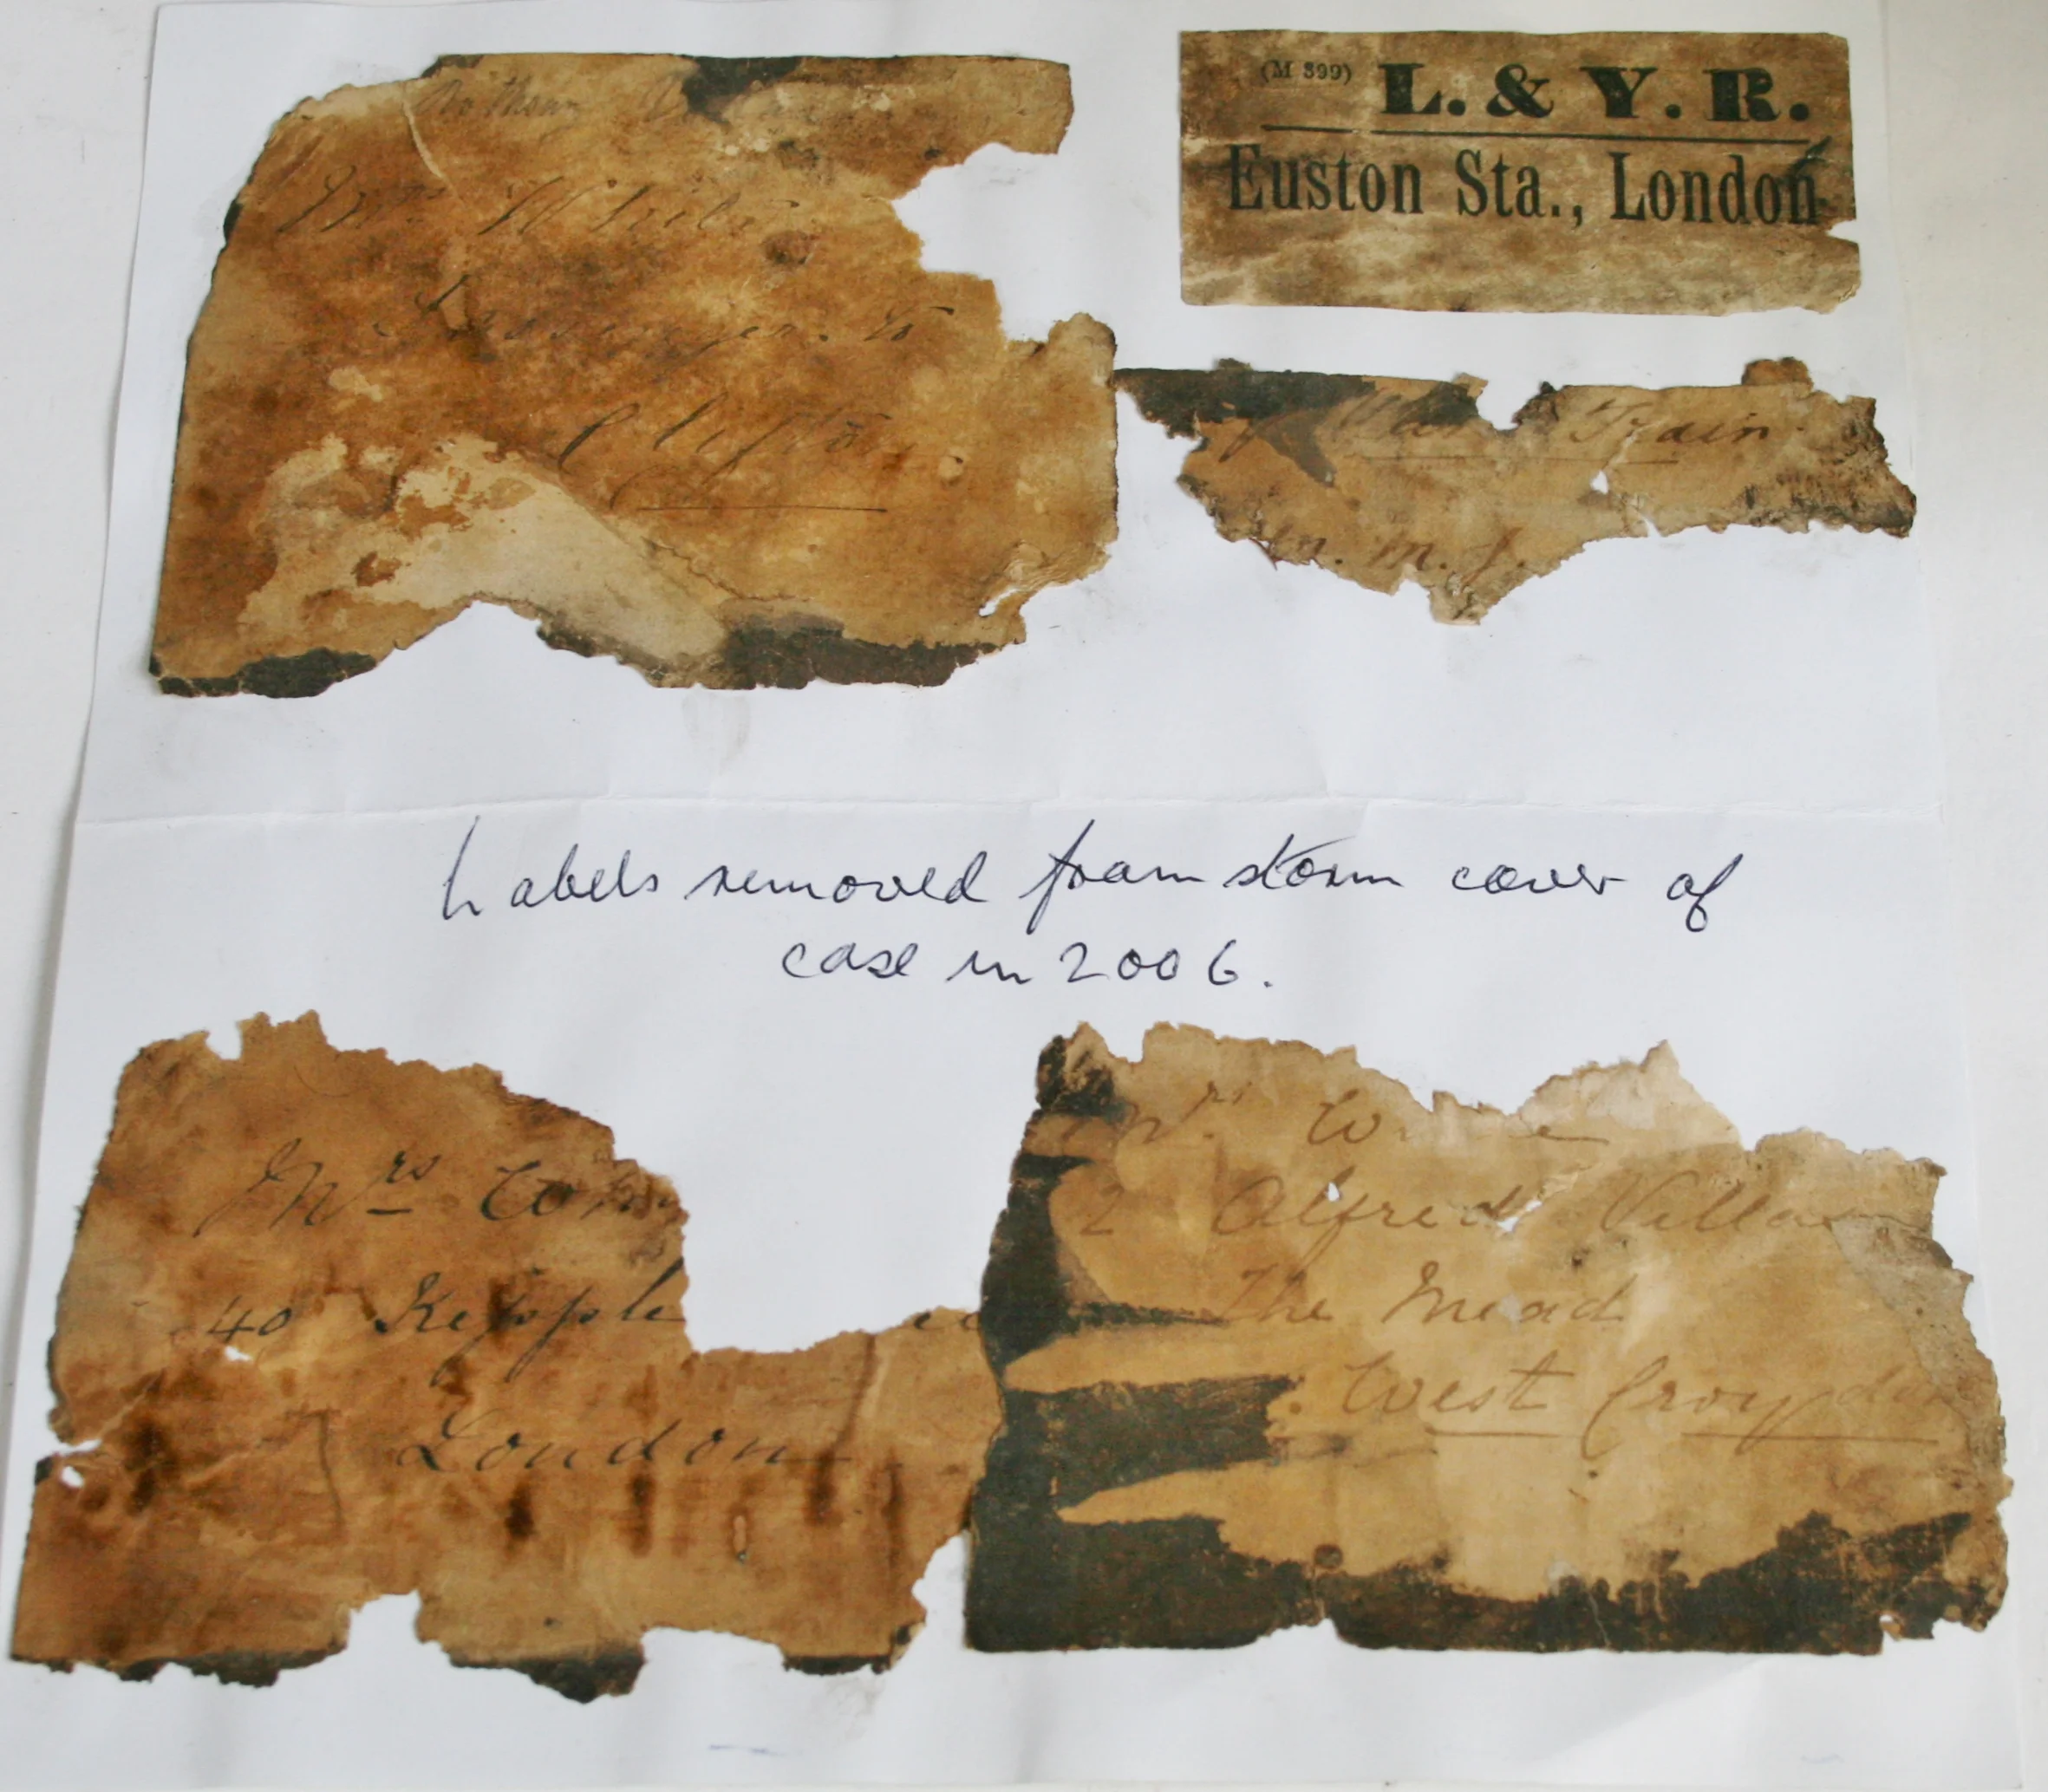 Mrs White
Passenger to
Clifton
(M 399) L. & Y. R.
Euston Sta., London
Train
Labels removed from storm cover of
case in 2006.
Mrs
40 Kepple
London
Mrs
2 Alfred Villas
The Mead
West Croydon